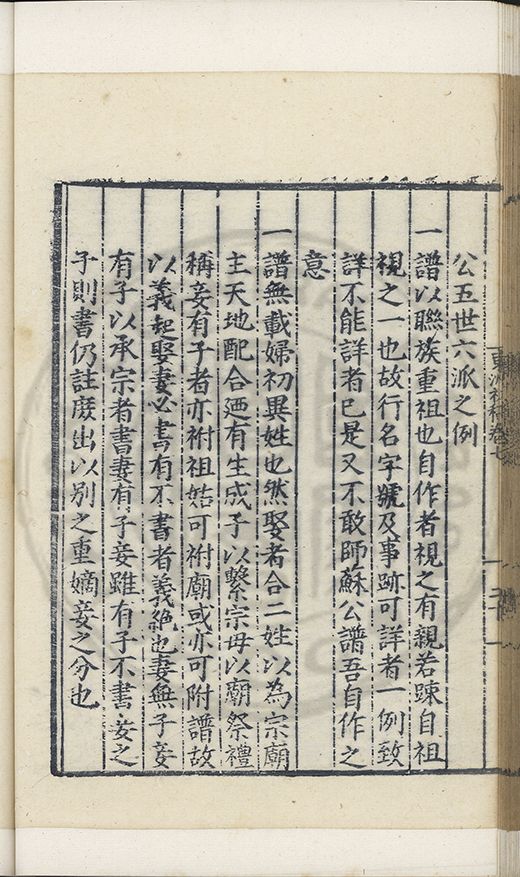 公五世六派之例
一譜以聯族重祖也自作者視之有親若踈自祖
視之一也故行名字號及事跡可詳者一例致
詳不能詳者已是又不敢師蘇公譜吾自作之
意
一譜無載婦初異姓也然娶者合二姓以為宗廟
主天地配合廼有生成子以繫宗母以廟祭禮
稱妾有子者亦祔祖姑可祔廟或亦可附譜故
以義起娶妻必書有不書者義絶也妻無子妾
有子以承宗者書妻有子妾雖有子不書妾之
子則書仍註庶出以別之重嫡妾之分也
卷七